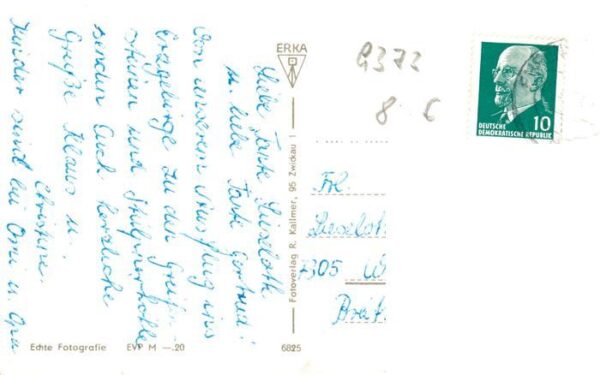 Liebe Tante Lieseloth
u. liebe Tante Gertrud!
Von unserem Ausflug ins
Erzgebirge zu den Greifen-
steinen und
senden Euch herzliche
Grüße Klaus u.
Christine.
Kinder sind bei Omi u. Opa
ERKA
Fotoverlag R. Kallmer, 95 Zwickau 1
Echte Fotografie EVP M —.20
6825
9373
8 6
DEUTSCHE
DEMOKRATISCHE REPUBLIK
10
Frl.
Lieselot
2305
Breit